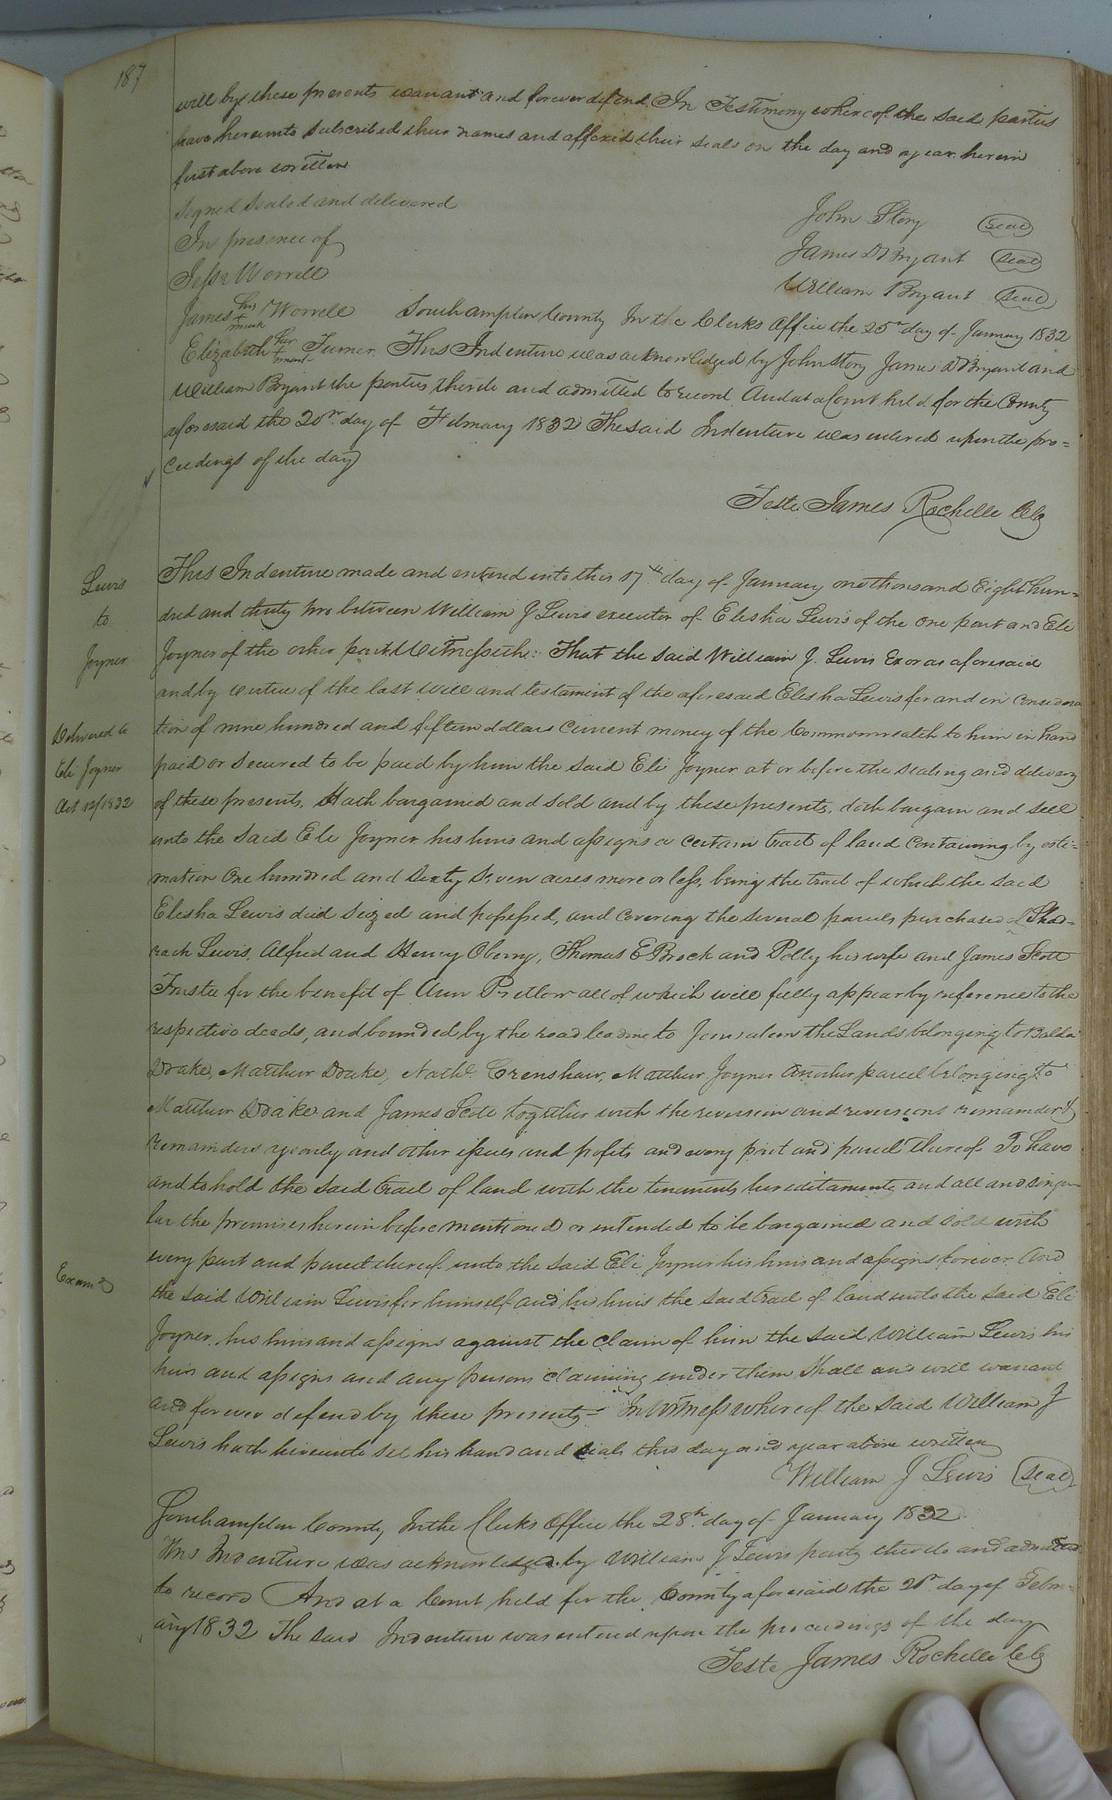 187
will by these presents warrant and forever defend. In Testimony whereof the said parties
have hereunto subscribed their names and affixed their seals on the day and year herein
first above written
Signed Sealed and delivered
In presence of
Jesse Worrell
John Story Seal
James D Bryant Seal
William Bryant Seal
James his + mark Worrell Southampton County In the Clerks Office the 25th day of January 1832
Elizabeth her + mark Turner. This Indenture was acknowledged by John Story James D Bryant and
William Bryant the parties thereto and admitted to record And at a Court held for the County
aforesaid the 20th day of February 1832 The said Indenture was entered upon the pro=
ceedings of the day
Teste James Rochelle Clk
Lewis
to
Joyner
Delivered to
Eli Joyner
Oct 12/1832
This Indenture made and entered into this 17th day of January one thousand Eight hun=
dred and thirty two between William J Lewis executor of Elisha Lewis of the one part and Eli
Joyner of the other part. Witnesseth: That the said William J. Lewis Exor as aforesaid
and by virtue of the last Will and testament of the aforesaid Elisha Lewis for and in considera
tion of nine hundred and fifteen dollars Current money of the Commonwealth to him in hand
paid or secured to be paid by him the said Eli Joyner at or before the sealing and delivery
of these presents, Hath bargained and sold and by these presents, doth bargain and sell
unto the said Eli Joyner his heirs and assigns a certain tract of land Containing by esti=
mation One hundred and Sixty Seven acres more or less, being the tract of which the said
Elisha Lewis died seized and possessed, and Covering the several parcels purchased of Shad=
rach Lewis, Alfred and Henry Oberry, Thomas E Brock and Polly his wife and James Scott
Trustee for the benefit of Ann Pretlow all of which will fully appear by reference to the
respective deeds, and bounded by the road leading to Jerusalem the Lands belonging to
Drake, Matthew Drake, Nathl Crenshaw, Matthew Joyner Another parcel belonging to
Matthew Drake and James Scott together with the reversion and reversions remainder &
remainders yearly and other issues and profits and every part and parcel thereof To have
and to hold the said tract of land with the tenements hereditaments and all and singu=
lar the premises herein before mentioned or intended to be bargained and sold with
every part and parcel thereof unto the said Eli Joyner his heirs and assigns forever And
Examd
the said William Lewis for himself and his heirs the said tract of land unto the said Eli
Joyner, his heirs and assigns against the claim of him the said William Lewis his
heirs and assigns and any persons claiming under them Shall and will warrant
and forever defend by these presents - In Witness whereof the said William J
Lewis hath hereunto set his hand and seals this day and year above written
William J Lewis Seal
Southampton County In the Clerks Office the 28th day of January 1832
This Indenture was acknowledged by William J Lewis party thereto and admitted
to record And at a Court held for the County aforesaid the 20th day of Febru=
ary 1832 The said Indenture was entered upon the proceedings of the day
Teste James Rochelle Clk